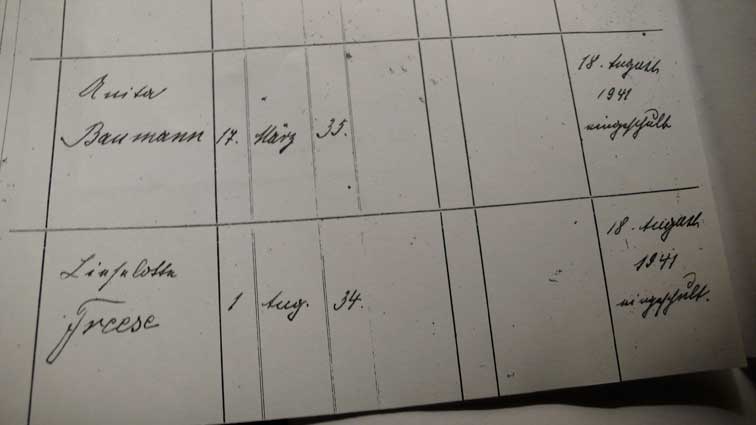 Anita
Baumann 17. März 35.
18. August
1941
eingeschult
Lieselotte
Freese 1 Aug. 34.
18. August
1941
eingeschult.